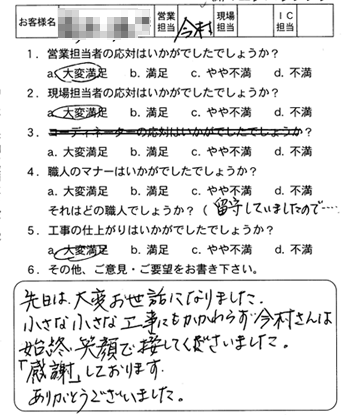 お客様名 営業担当 今村 現場担当 ＩＣ担当
1．営業担当者の応対はいかがでしたでしょうか？
a. 大変満足 b. 満足 c. やや不満 d. 不満
2．現場担当者の応対はいかがでしたでしょうか？
a. 大変満足 b. 満足 c. やや不満 d. 不満
3．コーディネーターの応対はいかがでしたでしょうか？
a. 大変満足 b. 満足 c. やや不満 d. 不満
4．職人のマナーはいかがでしたでしょうか？
a. 大変満足 b. 満足 c. やや不満 d. 不満
それはどの職人でしょうか？（ 留守していましたので…
5．工事の仕上がりはいかがでしたでしょうか？
a. 大変満足 b. 満足 c. やや不満 d. 不満
6．その他、ご意見・ご要望をお書き下さい。
先日は、大変お世話になりました．
小さな小さな工事にもかかわらず今村さんは
始終、笑顔で接してくださいました。
「感謝」しております．
ありがとうございました。